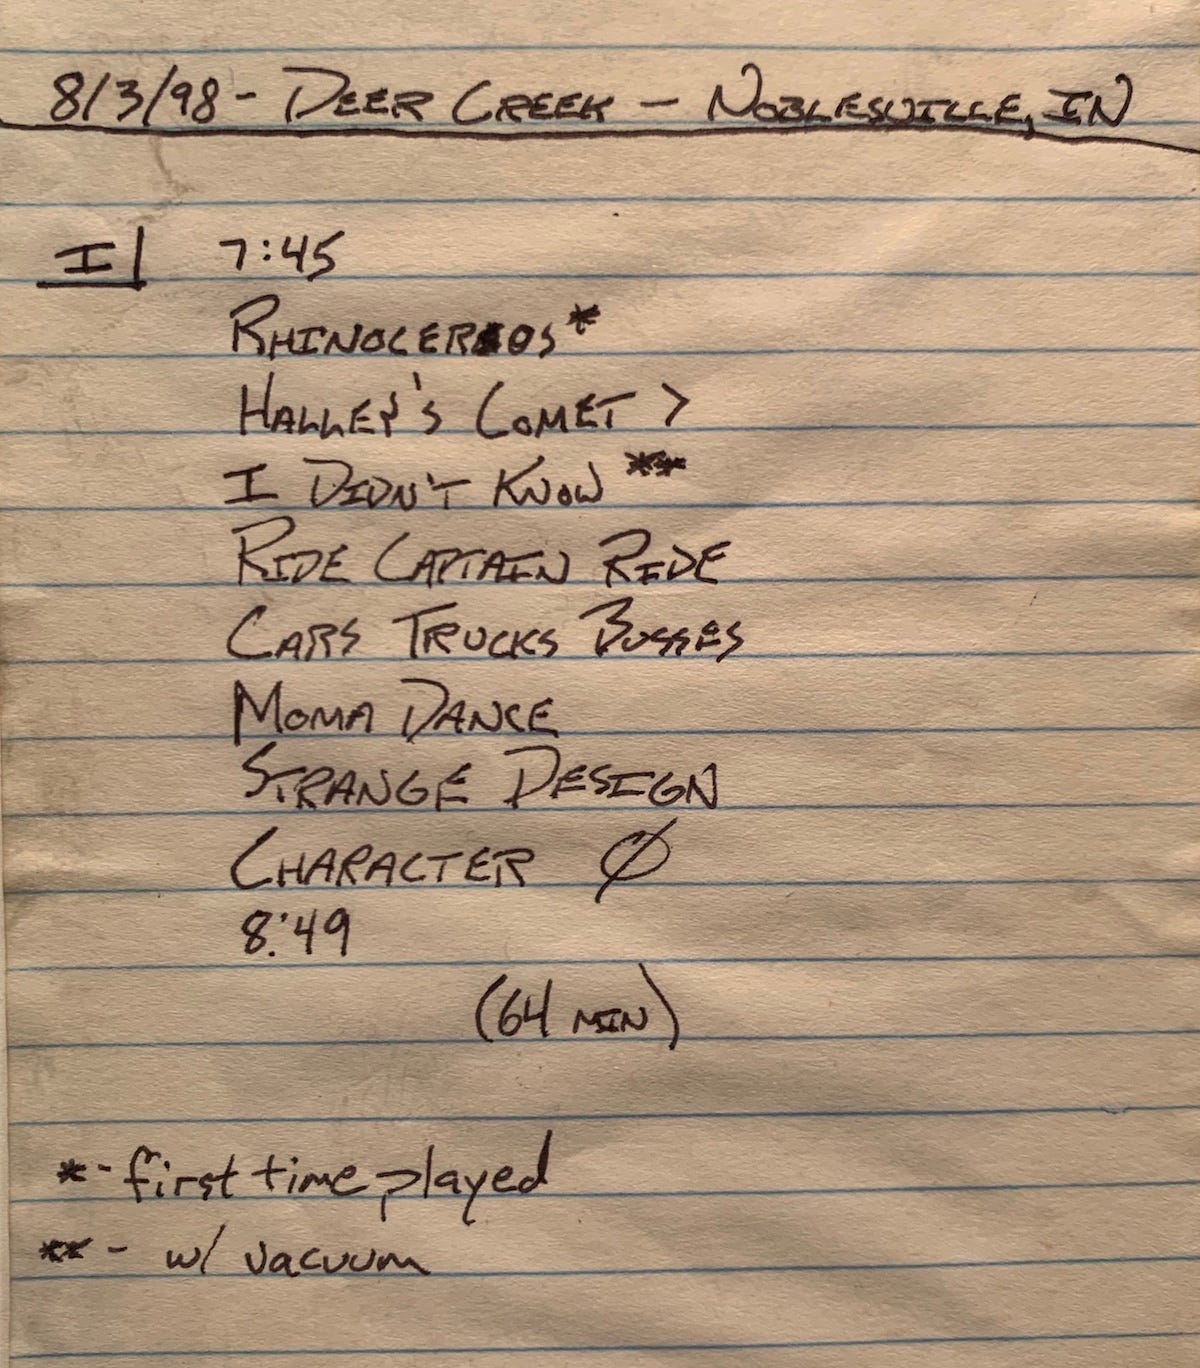 8/3/98 - DEER CREEK - NOBLESVILLE, IN
I 7:45
RHINOCEROS*
HALLEY'S COMET >
I DIDN'T KNOW **
RIDE CAPTAIN RIDE
CARS TRUCKS BUSSES
MOMA DANCE
STRANGE DESIGN
CHARACTER Ø
8:49
(64 MIN)
* - first time played
** - w/ vacuum